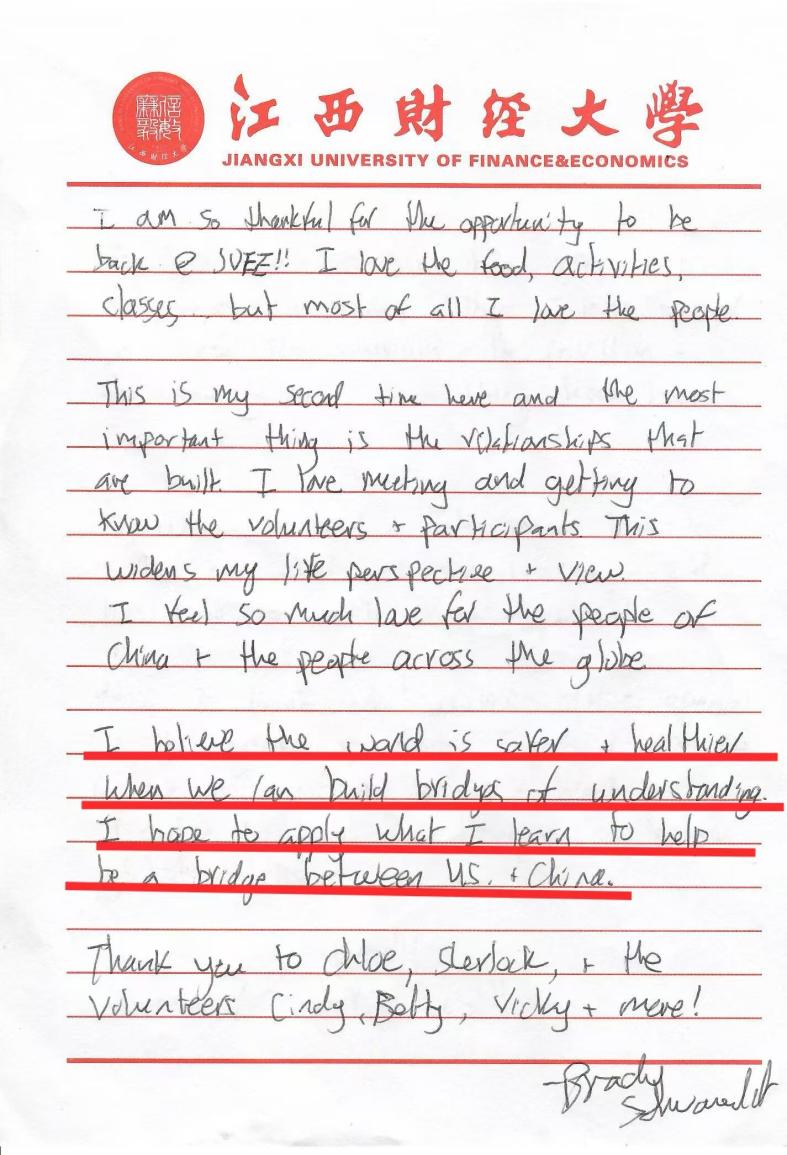 江西財經大學
JIANGXI UNIVERSITY OF FINANCE&ECONOMICS
江西财经大学
I am so thankful for the opportunity to be
back @ JUFE!! I love the food, activities,
classes... but most of all I love the people.
This is my second time here and the most
important thing is the relationships that
are built. I love meeting and getting to
know the volunteers + participants. This
widens my life perspective + view.
I feel so much love for the people of
China + the people across the globe.
I believe the world is safer + healthier
when we can build bridges of understanding.
I hope to apply what I learn to help
be a bridge between U.S. + China.
Thank you to Chloe, Sherlock, + the
volunteers Cindy, Betty, Vicky + more!
Brady